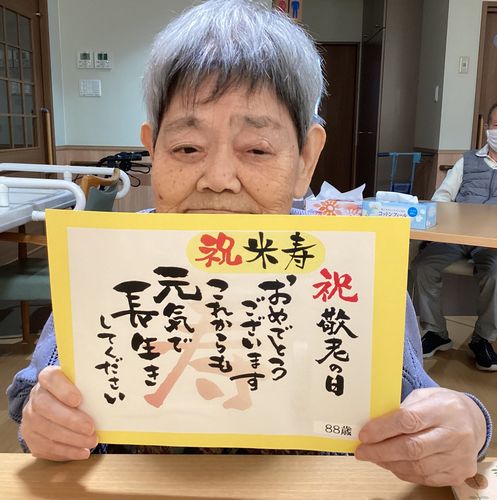 祝米寿
祝
敬老の日
おめでとう
ございます
これからも
元気で
長生き
してください
寿
88歳
コットンフィール